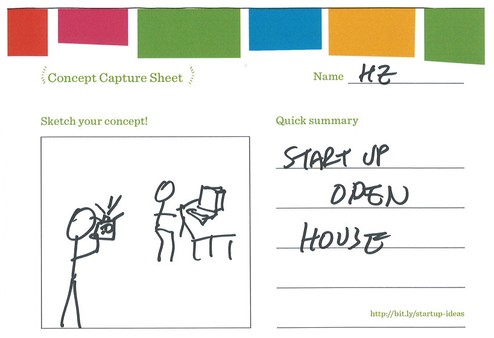 Concept Capture Sheet
Name HZ
Sketch your concept!
Quick summary
START UP
OPEN
HOUSE
http://bit.ly/startup-ideas